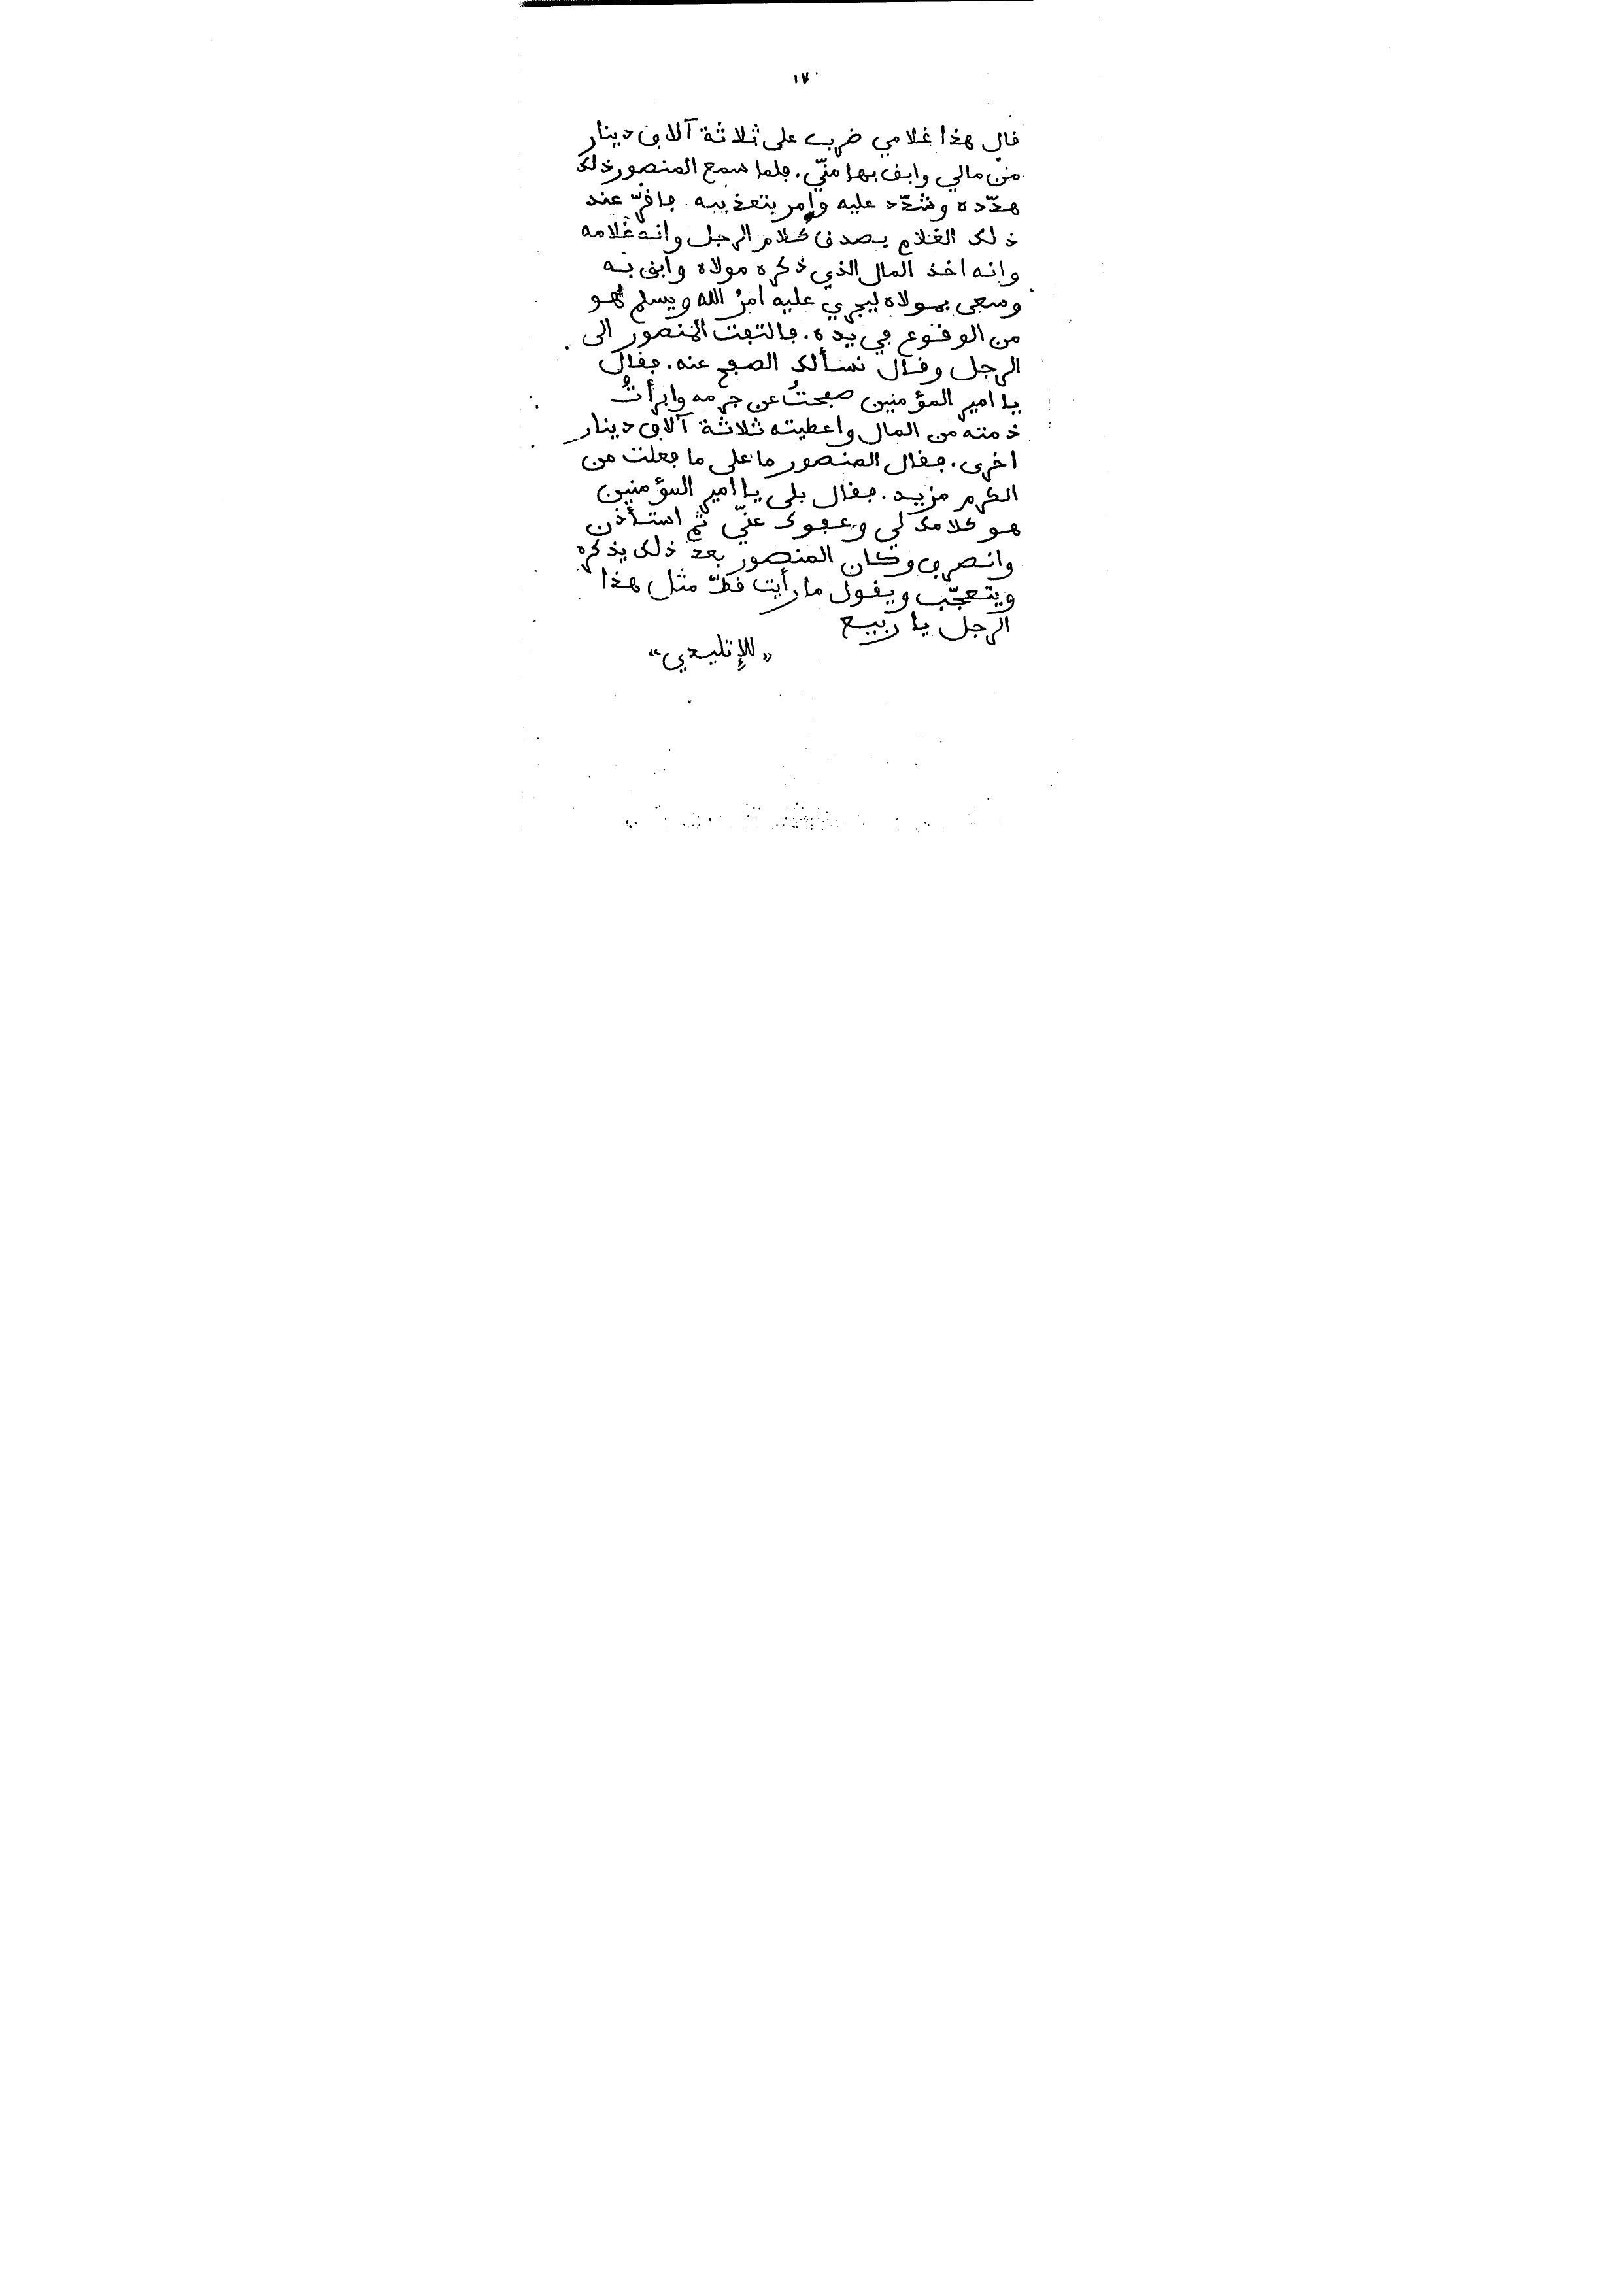 ١٧
قال هذا غلامي ضرب على ثلاثة آلاف دينار
من مالي وابق بها منّي. فلما سمع المنصور ذلك
هدّده وشدّد عليه وامر بتعذيبه. فاقرّ عند
ذلك الغلام بصدق كلام الرجل وانه غلامه
وانه اخذ المال الذي ذكره مولاه وابق به
وسعى بمولاه ليجري عليه امرُ الله ويسلم هو
من الوقوع في يده. فالتفت المنصور الى
الرجل وقال نسألك الصفح عنه. فقال
يا امير المؤمنين صفحتُ عن جرمه وابرأتُ
ذمته من المال واعطيته ثلاثة آلاف دينار
اخرى. فقال المنصور ما على ما فعلت من
الكرم مزيد. فقال بلى يا امير المؤمنين
هو كلامك لي وعفوك عنّي ثم استأذن
وانصرف وكان المنصور بعد ذلك يذكره
ويتعجّب ويقول ما رأيت قطّ مثل هذا
الرجل يا ربيع
«للإتليدي»